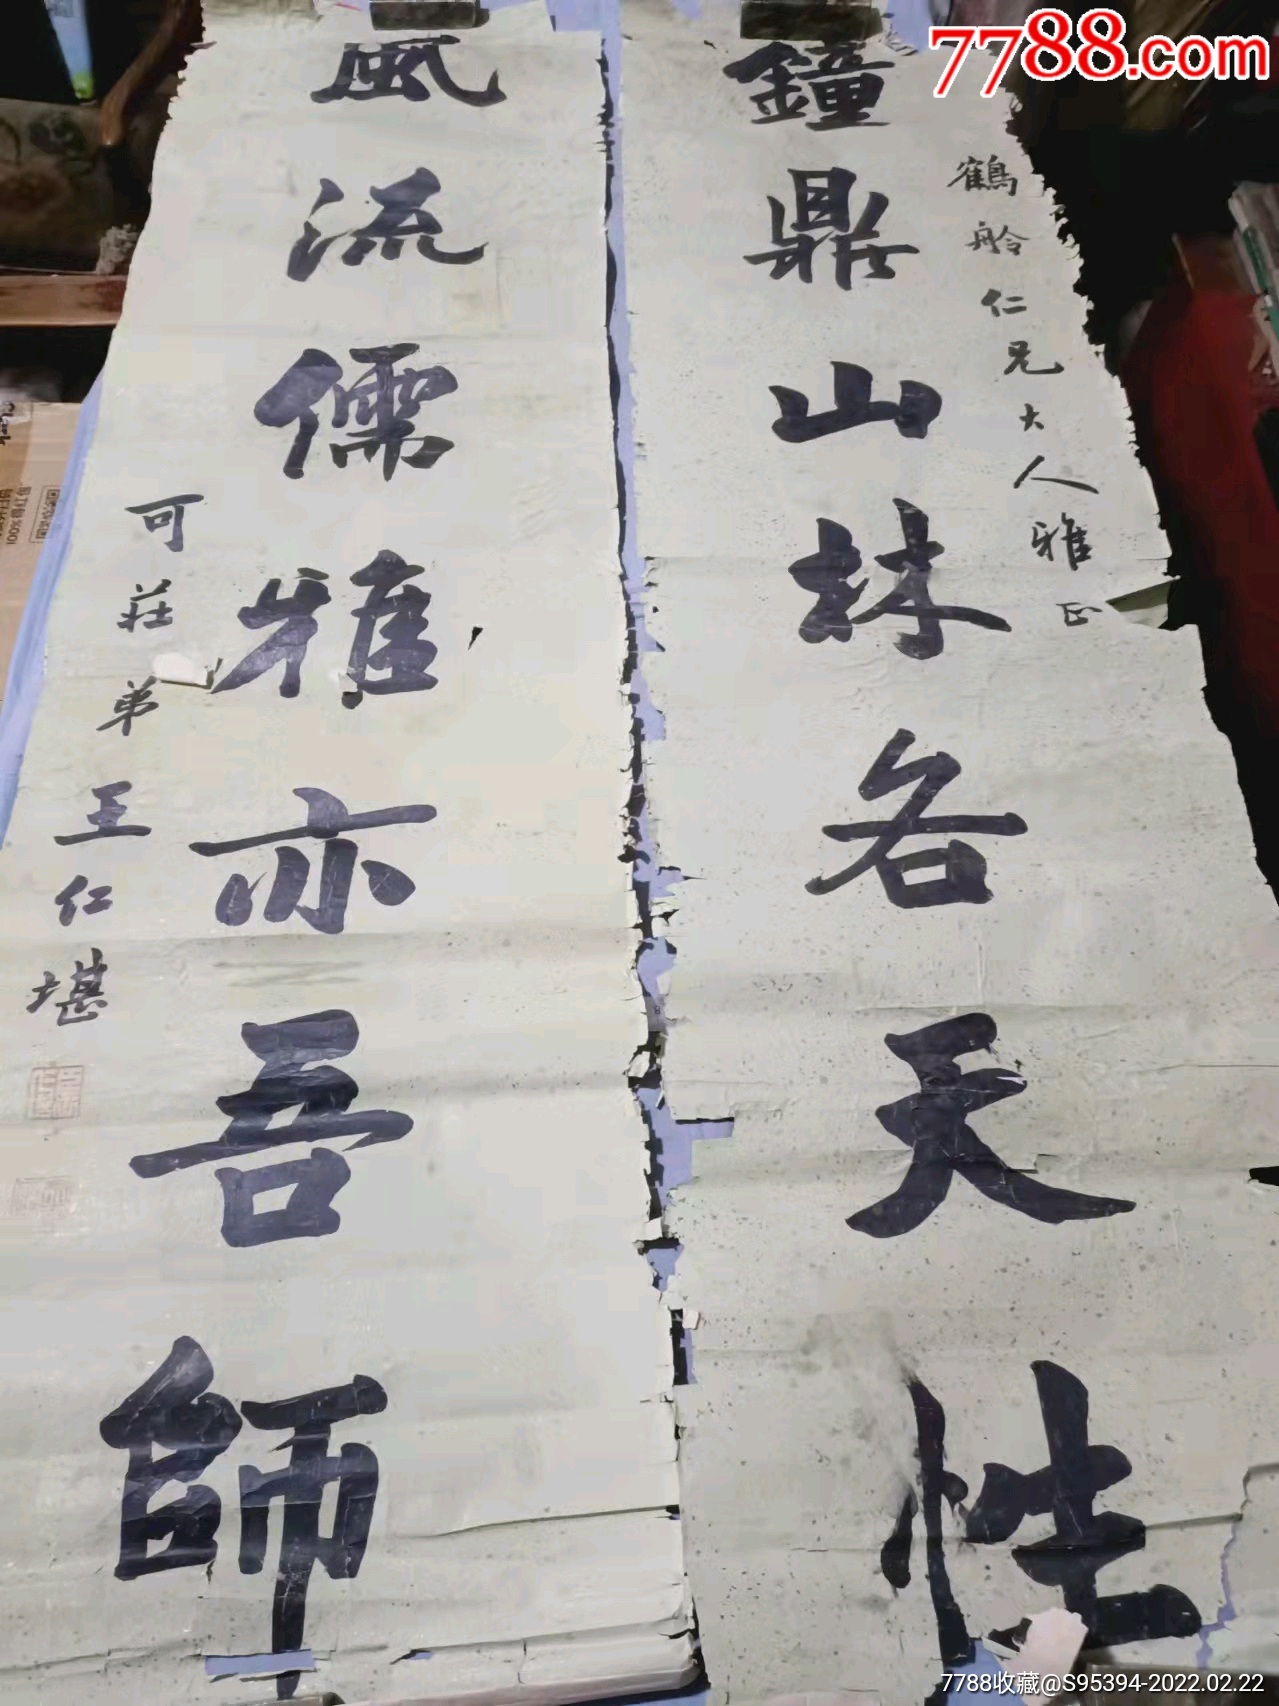 7788.com
鶴舲仁兄大人雅正
鐘鼎山林各天性
風流儒雅亦吾師
可莊弟王仁堪
100%得红包
7788收藏@S95394-2022.02.22